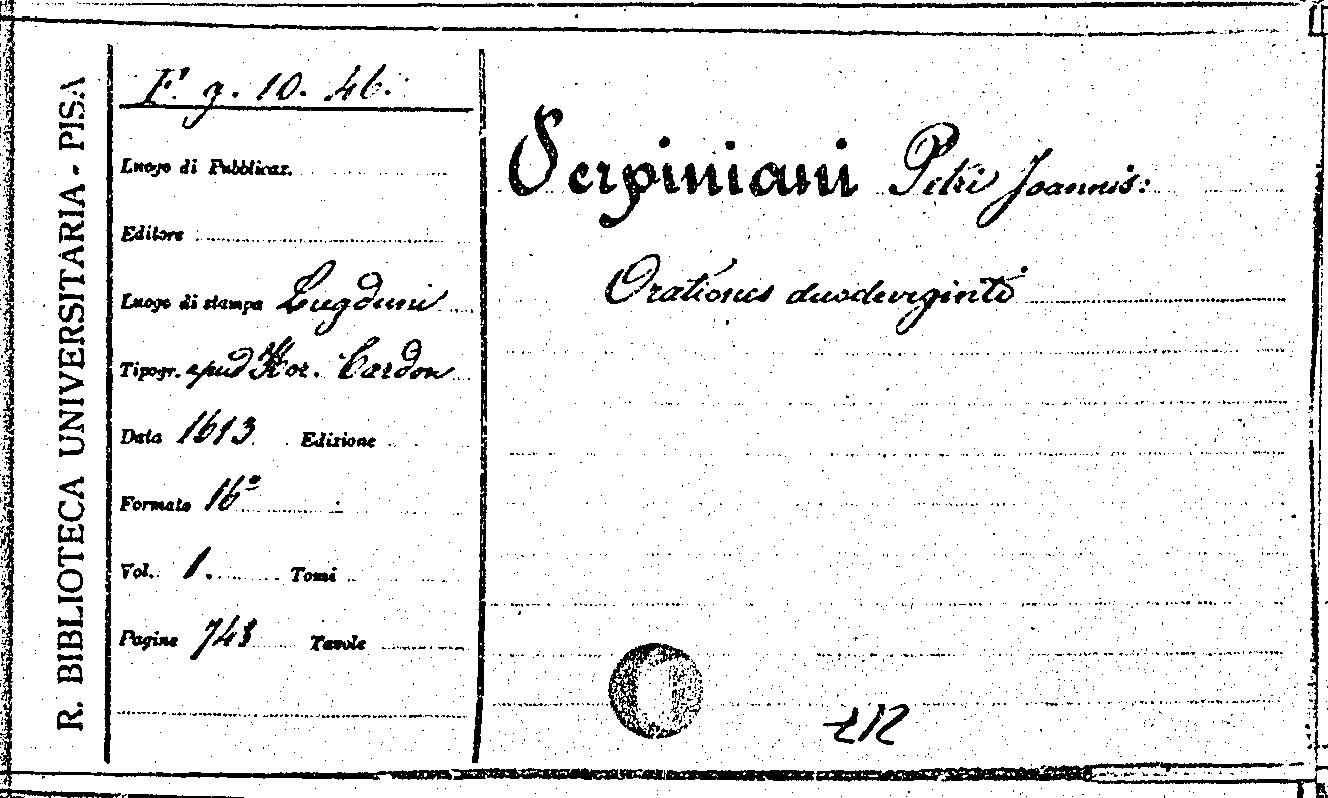 R. BIBLIOTECA UNIVERSITARIA - PISA
F. g. 10. 46.
Luogo di Pubblicaz.
Editore
Luogo di stampa Lugduni
Tipogr. apud Hor. Cardon
Data 1613 Edizione
Formato 16º
Vol. 1. Tomi
Pagine 743 Tavole
Serpiniani Petri Joannis:
Orationes duodeviginti